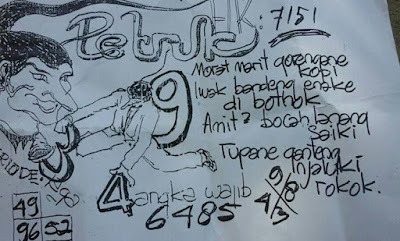 HK: 7151
Petruk
Morat marit gorengane
kopi
Iwak bandeng enake
di bothok
Amit2 bocah lanang
saiki
Tupane ganteng
injaluki
rokok.
9
3
4 angka wajib
6485
9/8
4/3
49
96 52